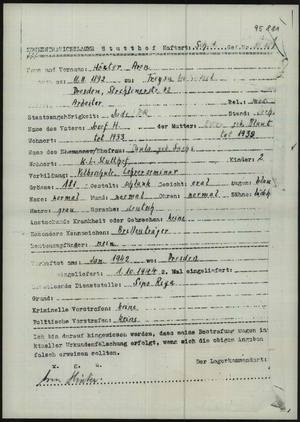 95 881
KONZENTRATIONSLAGER Stutthof Haftart: Gef.Nr.
Name und Vorname: Hönter Aron
11.11 1892 zu:
Dresden,
Arbeiter Rel.:
Staatsangehörigkeit: Stand:
Name des Vaters: Josef H. der Mutter: geb. Blunt
Wohnort: tot 1933 tot 1939
Name des Ehemannes/Ehefrau: Paula geb.
Wohnort: K.L. Stutthof Kinder: 2
Vorbildung: Volksschule, Lehrerseminar
Grösse: 181 Gestalt: schlank Gesicht: oval Augen: blau
Nase: normal Mund: normal Ohren: normal Zähne:
Haare: grau Sprache: deutsch
Ansteckende Krankheit oder Gebrechen: keine
Besondere Kennzeichen: Brillenträger
Rentenempfänger: nein
Verhaftet am: Jan. 1942 wo: Dresden
eingeliefert: 1.10.1944 Mal eingeliefert:
Dienststelle: Sipo Riga
Grund:
Kriminelle Vorstrafen: keine
Politische Vorstrafen: keine
Ich bin darauf hingewiesen worden, dass meine Bestrafung wegen in-
tellektueller Urkundenfälschung erfolgt, wenn sich die obigen Angaben
falsch erweisen sollten.
v. g. u.
Der Lagerkommandant: